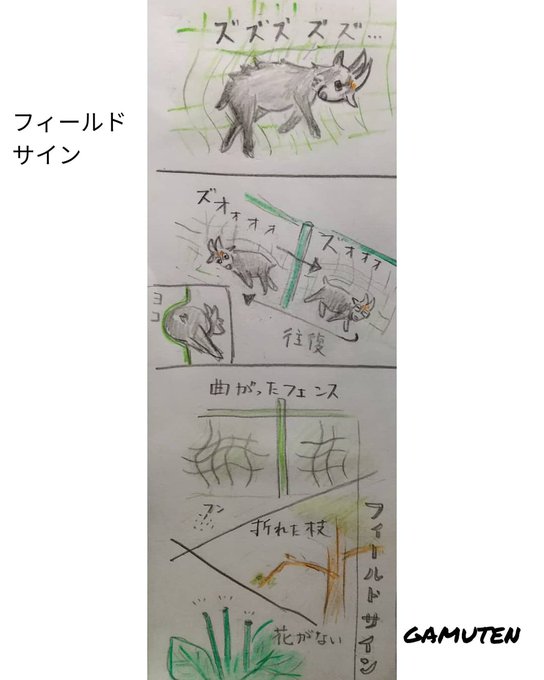 フィールド
サイン
ズズズズズ…
ズオォォォォ
ズオォォォ
往復
ヨコ
曲がったフェンス
フン
折れた枝
花がない
フィールドサイン
GAMUTEN